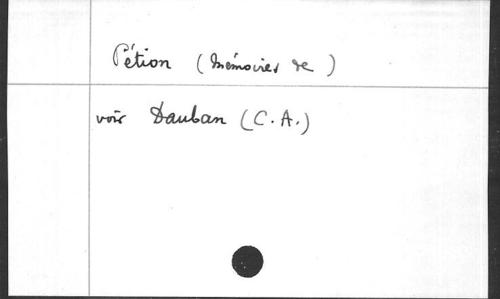 Pétion (Mémoires de )
voir Dauban (C. A.)